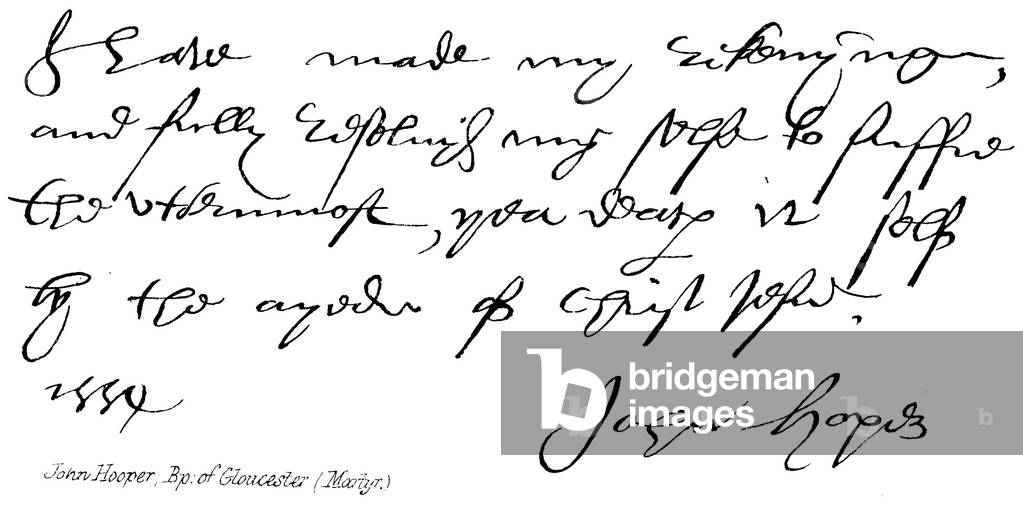 I have made my rekenynge,
and fully resoluyd my selfe to suffre
the vttermost, yea deathe it selfe
by the ayede of Christ Jesu.
1554
bridgeman
images
John Hooper, Bp: of Gloucester (Martyr.)